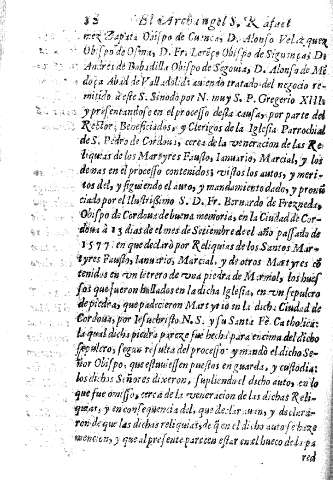 82 El Archangel S. Rafael
mez Zapata Obispo de Cuenca, D. Alonso Velazquez
Obispo de Osma, D. Fr. Lorẽço Obispo de Siguença, D.
Andres de Bobadilla Obispo de Segovia, D. Alonso de Mẽ
doça Abad de Valladolid: aviendo tratado del negocio re-
mitido à este S. Sinodo por N. muy S. P. Gregorio XIII.
y presentandose en el processo desta causa, por parte del
Rector, Beneficiados, y Clerigos de la Iglesia Parrochial
de S. Pedro de Cordoua, cerca de la veneracion de las Re-
liquias de los Martyres Fausto, Ianuario, Marcial, y los
demas en el processo contenidos; vistos los autos, y meri-
tos del, y siguiendo el auto, y mandamiento dado, y pronũ
ciado por el Ilustrissimo S. D. Fr. Bernardo de Frezneda,
Obispo de Cordoua de buena memoria, en la Ciudad de Cor-
doua à 13 dias de el mes de Setiembre de el año passado de
1577. en que declarò por Reliquias de los Santos Mar-
tyres Fausto, Ianuario, Marcial, y de otros Martyres cõ
tenidos en vn letrero de vna piedra de Marmol, los hues-
sos que fueron hallados en la dicha Iglesia, en vn sepulcro
de piedra, que padecieron Martyrio en la dicha Ciudad de
Cordoua, por Iesu Christo N. S. y su Santa Fè Catholica:
la qual dicha piedra parece fue hecha para encima del dicho
sepulcro, segun resulta del processo: y mandò el dicho Se-
ñor Obispo, que estuviessen puestos en guarda, y custodia:
los dichos Señores dixeron, supliendo el dicho auto, en lo
que fue omisso, cerca de la veneracion de las dichas Reli-
quias, y en conseqüencia del, que declaravan, y declara-
ron de que las dichas reliquias, de q̃ en el dicho auto se haze
mencion, y que al presente parecen estar en el hueco de la pa
red